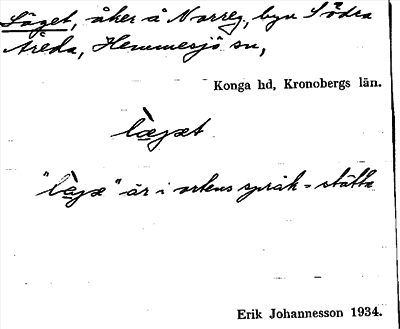 Läget, åker å Norreg, byn Södra
Åreda, Hemmesjö sn,
Konga hd, Kronobergs län.
læ̀gæt
"læ̀gæ" är i ortens språk = slätta
Erik Johannesson 1934.